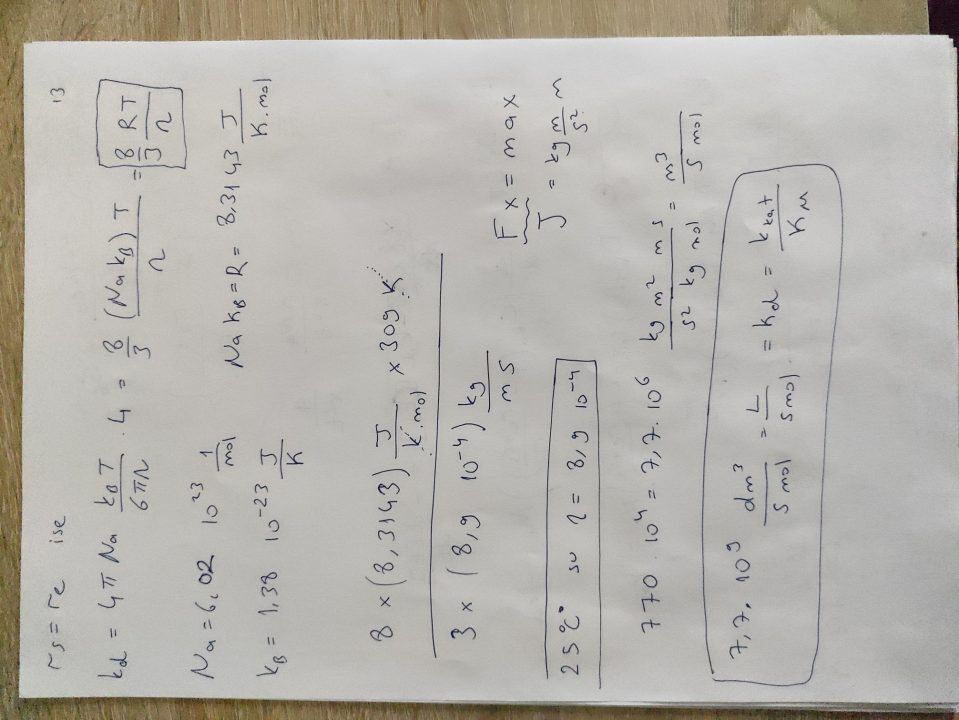 13
rs = re ise
kd = 4π Na kBT/6πη . 4 = 8/3 (Na kB) T/η = 8/3 RT/η
Na = 6,02 10²³ 1/mol
kB = 1,38 10⁻²³ J/K Na kB = R = 8,3143 J/K.mol
8 x (8,3143) J/K.mol x 309 K
3 x (8,9 10⁻⁴) kg/m s
F x = m a x
J = kg m/s² m
25 C° su η = 8,9 10⁻⁴
770 . 10⁴ = 7,7 . 10⁶ kg m² m s/s² kg mol = m³/s mol
7,7 . 10⁹ dm³/s mol = L/s mol = kd = kkat/KM